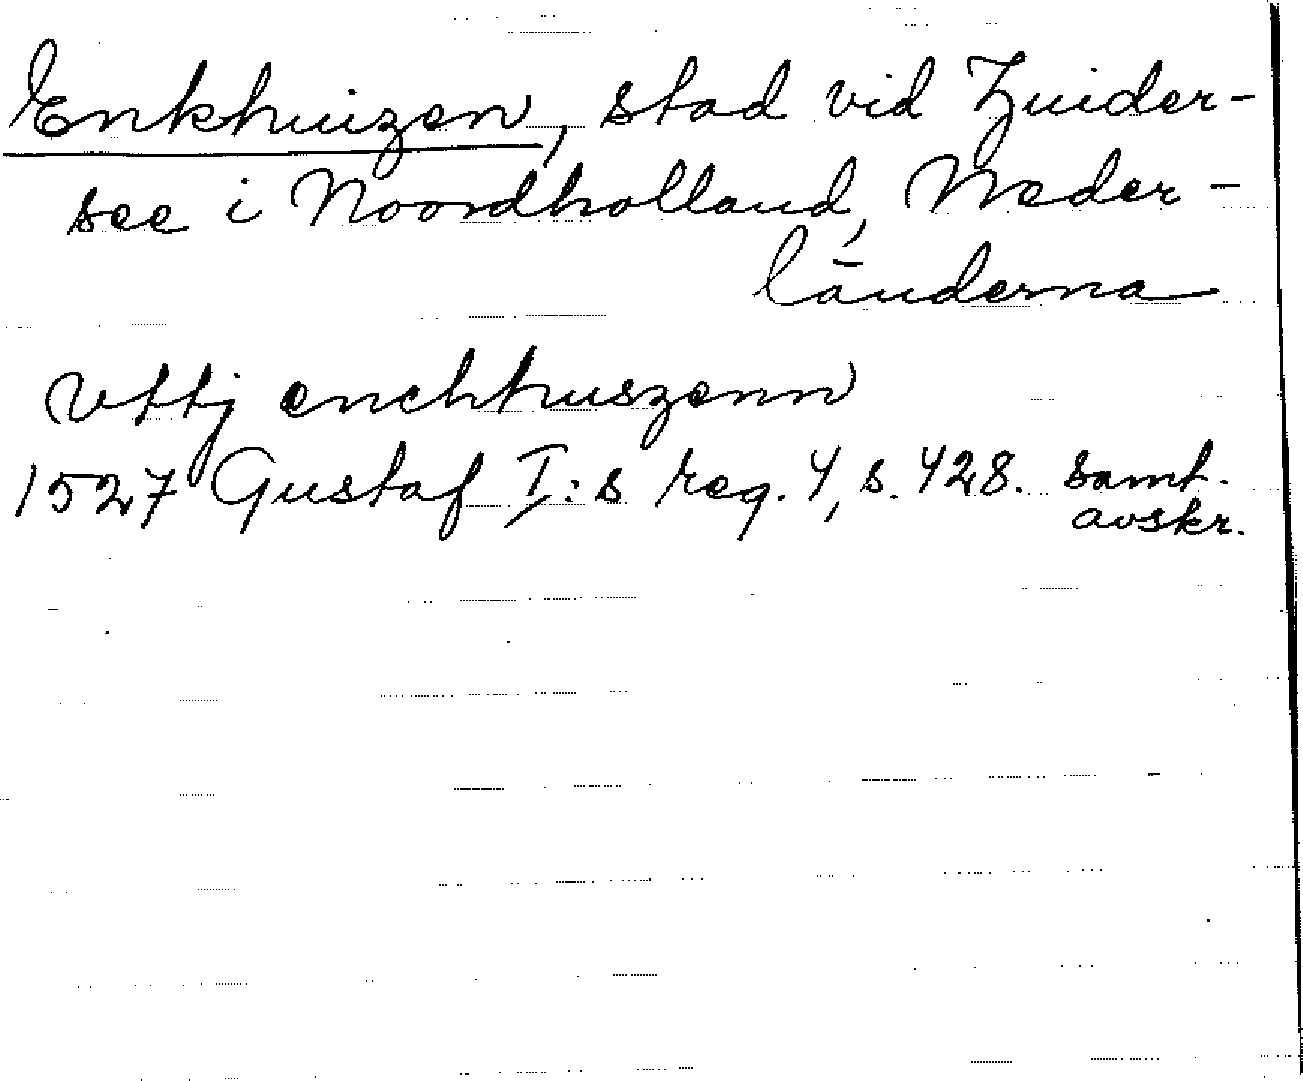 Enkhuizen, stad vid Zuider-
see i Noordholland, Neder-
länderna
Vttj enchhuszenn
1527 Gustaf I:s reg. 4, s. 428. samt.
avskr.